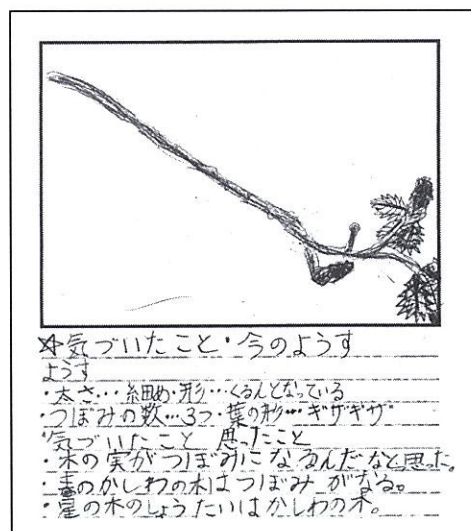 ☆気づいたこと・今のようす
ようす
・太さ…細め・形…くるんとなっている
・つぼみの数…3つ・葉の形…ギザギザ
気づいたこと 思ったこと
・木の実がつぼみになるんだなと思った。
・春のかしわの木はつぼみがなる。
・星の木のしょうたいはかしわの木。